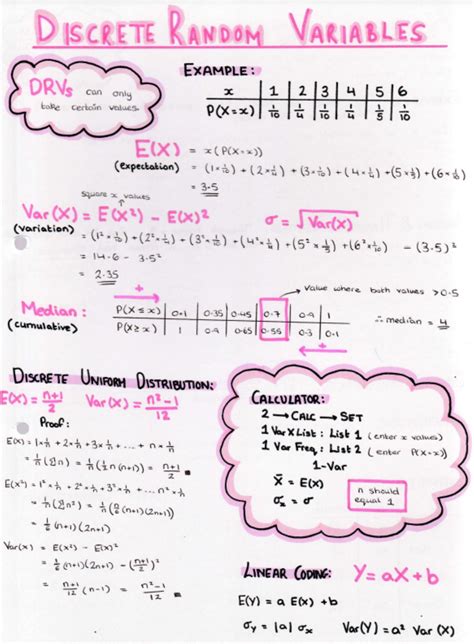 DISCRETE RANDOM VARIABLES
DRVs can only
take certain values.
EXAMPLE:
x 1 2 3 4 5 6
P(X=x) 1/10 1/4 1/10 1/4 1/5 1/10
E(X) = x(P(X=x))
(expectation) = (1×1/10) + (2×1/4) + (3×1/10) + (4×1/4) + (5×1/5) + (6×1/10)
= 3.5
square x values
Var(X) = E(X²) - E(X)² σ = √Var(X)
(variation) = (1²×1/10) + (2²×1/4) + (3²×1/10) + (4²×1/4) + (5²×1/5) + (6²×1/10) - (3.5)²
= 14.6 - 3.5²
= 2.35
+
value where both values >0.5
Median: P(X≤x) 0.1 0.35 0.45 0.7 0.9 1
(cumulative) P(X≥x) 1 0.9 0.65 0.55 0.3 0.1
∴ median = 4
+
DISCRETE UNIFORM DISTRIBUTION:
E(X) = n+1/2 Var(X) = n²-1/12
Proof:
E(X) = 1×1/n + 2×1/n + 3×1/n + ... + n×1/n
= 1/n(Σn) = 1/n(½n(n+1)) = n+1/2
E(X²) = 1²×1/n + 2²×1/n + 3²×1/n + ... n²×1/n
= 1/n(Σn²) = 1/n(1/6n(n+1)(2n+1))
= 1/6(n+1)(2n+1)
Var(X) = E(X²) - E(X)²
= 1/6(n+1)(2n+1) - (n+1/2)²
= n+1/12(n-1) = n²-1/12
CALCULATOR:
2 → CALC → SET
1 Var XList : List 1 (enter x values)
1 Var Freq : List 2 (enter P(X=x))
1-Var
x̄ = E(X)
σx = σ
n should
equal 1
LINEAR CODING: Y=aX+b
E(Y) = a E(X) + b
σy = |a| σx Var(Y) = a² Var(X)